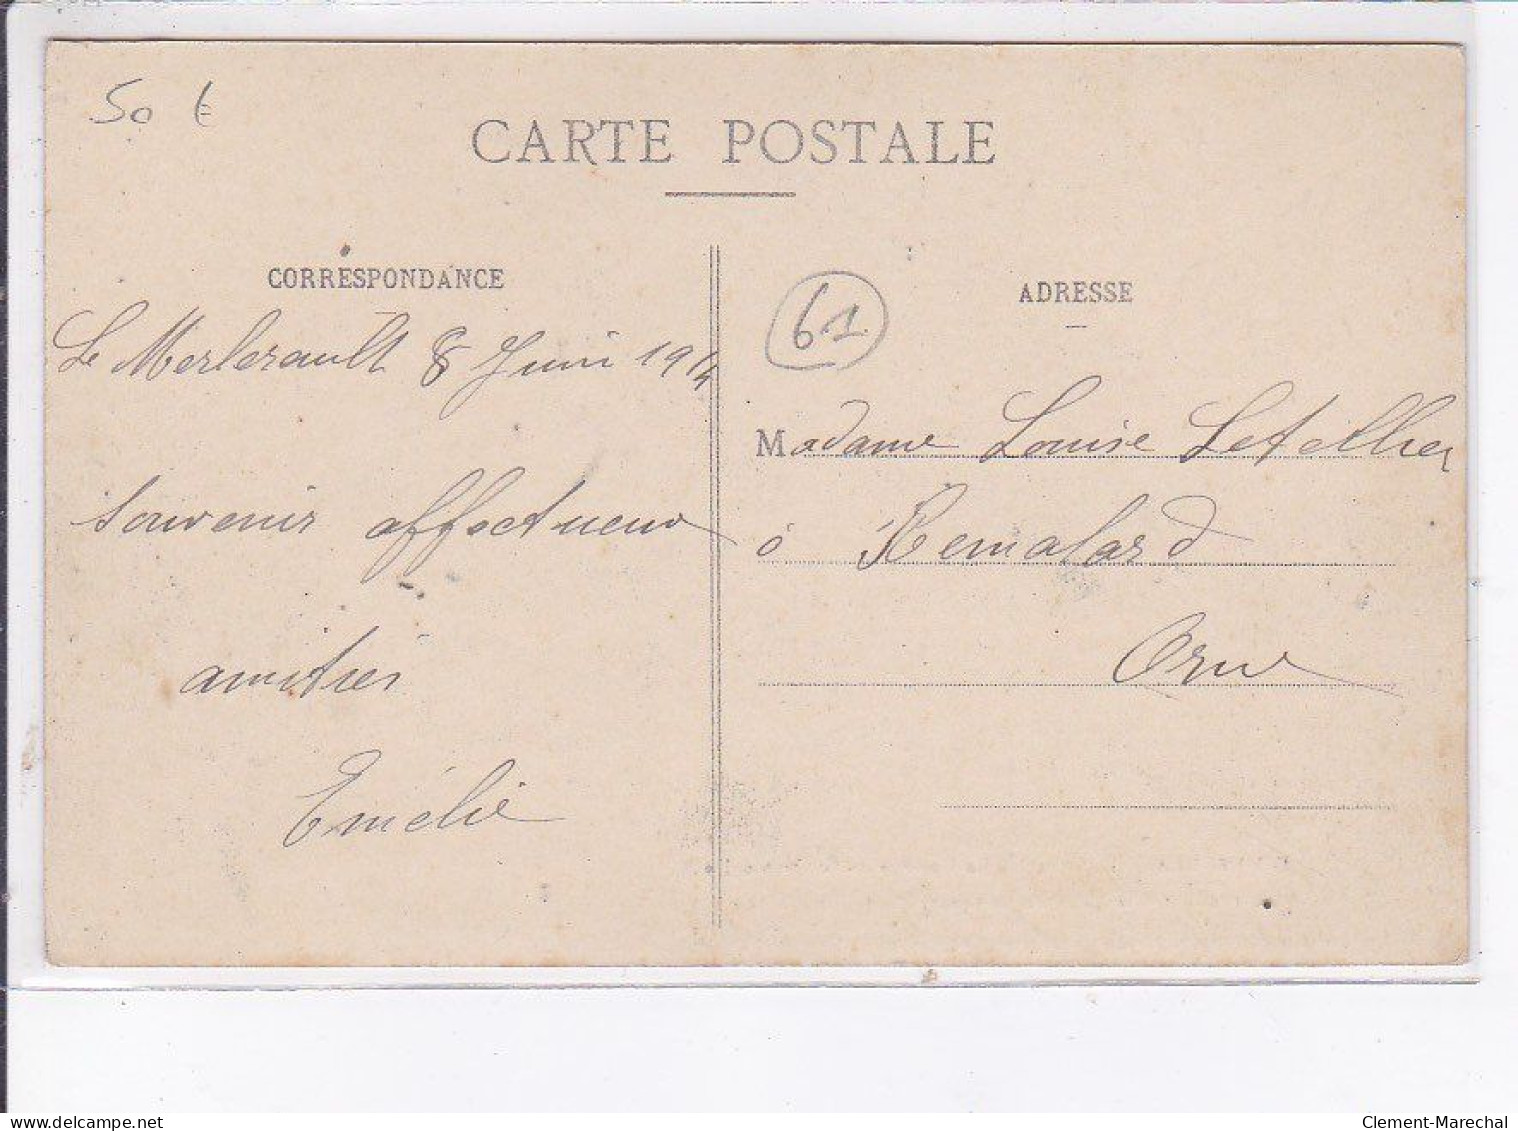 50 €
CARTE POSTALE
CORRESPONDANCE
Le Merlerault 8 Juin 1914
souvenir affectueux
amitiés
Emélie
61
ADRESSE
Madame Louise Letellier
à Remalard
Orne
www.delcampe.net
Clement-Marechal